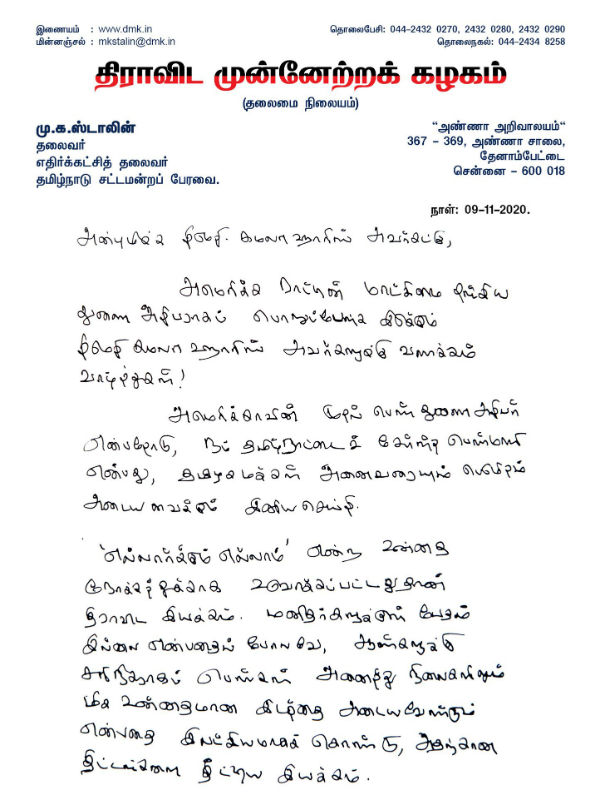 இணையம் : www.dmk.in
மின்னஞ்சல் : mkstalin@dmk.in
தொலைபேசி: 044-2432 0270, 2432 0280, 2432 0290
தொலைநகல்: 044-2434 8258
திராவிட முன்னேற்றக் கழகம்
(தலைமை நிலையம்)
மு.க.ஸ்டாலின்
தலைவர்
எதிர்க்கட்சித் தலைவர்
தமிழ்நாடு சட்டமன்றப் பேரவை.
"அண்ணா அறிவாலயம்"
367 – 369, அண்ணா சாலை,
தேனாம்பேட்டை
சென்னை – 600 018
நாள்: 09-11-2020.
அன்புமிக்க திருமதி. கமலா ஹாரிஸ் அவர்கட்கு,
அமெரிக்க நாட்டின் மாட்சிமை தங்கிய
துணை அதிபராகப் பொறுப்பேற்க இருக்கும்
திருமதி கமலா ஹாரிஸ் அவர்களுக்கு வணக்கம்
வாழ்த்துகள்!
அமெரிக்காவின் முதல் பெண் துணை அதிபர்
என்பதோடு, நம் தமிழ்நாட்டைச் சேர்ந்த பெண்மணி
என்பது, தமிழக மக்கள் அனைவரையும் பெருமிதம்
அடைய வைக்கும் இனிய செய்தி.
'எல்லார்க்கும் எல்லாம்' என்ற உன்னத
நோக்கத்துக்காக உருவாக்கப்பட்டதுதான்
திராவிட இயக்கம். மனிதர்களுக்குள் பேதம்
இல்லை என்பதைப் போலவே, ஆண்களுக்கு
சரிநிகராகப் பெண்கள் அனைத்து நிலைகளிலும்
மிக உன்னதமான இடத்தை அடையவேண்டும்
என்பதை இலட்சியமாகக் கொண்டு, அதற்கான
திட்டங்களை தீட்டிய இயக்கம்.